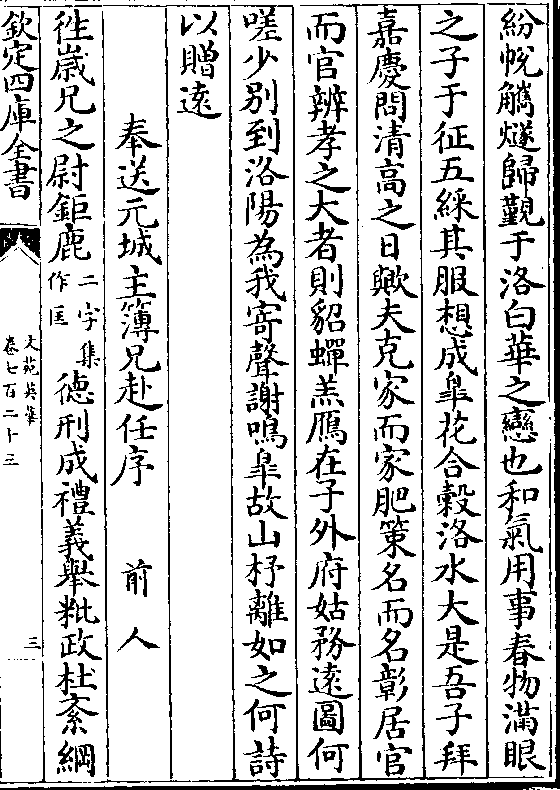 紛帨觿燧歸覲于洛白華之戀也和氣用事春物滿眼
之子于征五綵其服想成臯花合穀洛水大是吾子拜
嘉慶問清高之日歟夫克家而家肥策名而名彰居官
而官辨孝之大者則貂蟬羔鴈在子外府姑務遠圖何
嗟少别到洛陽為我寄聲謝鳴臯故山杼離如之何詩
以贈遠
奉送元城主簿兄赴任序 前人
徃嵗兄之尉鉅鹿二字集作匡德刑成禮義舉粃政杜紊綱
欽定四庫全書
文苑英華
卷七百二十三
三